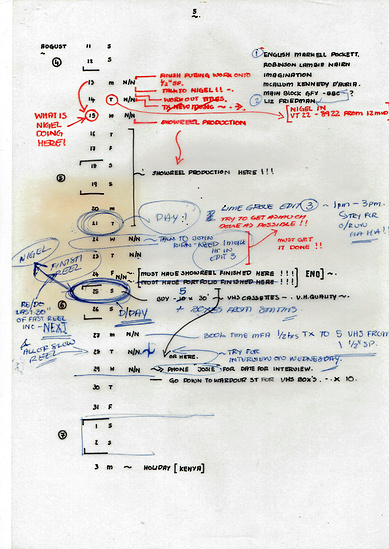 5.
AUGUST 11 S
④ 12 S
13 M N/N FINISH DUBING WORK ONTO 1/2" SP.
TALK TO NIGEL !! -.
14 T N/N WORK OUT TITLES.
15 W N/N SHOWREEL PRODUCTION
WHAT IS NIGEL DOING HERE!
① ENGLISH MARKELL POCKETT.
ROBINSON LAMBIE NAIRN
IMAGINATION
McALLUM KENNEDY D'AURIA.
MAIN BLOCK GFX - BBC ?
② LIZ FRIEDMAN.
NIGEL IN
VT 22 - 8922 FROM 12
16 T
17 F
18 S
⑤ SHOWREEL PRODUCTION HERE !!!
19 S
20 M
21 T DAY 1
LIME GROVE EDIT ③ ~ 1pm - 3pm.
TRY TO GET AS MUCH DONE AS POSSIBLE !!
TRY FOR O/RUN HA HA!
22 W N/N TALK TO JOHN
NEED
IN EDIT 3
MUST GET IT DONE !!
23 T N/N
NIGEL
FINISH REEL
24 F N/N MUST HAVE SHOWREEL FINISHED HERE !!! END ~.
MUST HAVE PORTFOLIO FINISHED HERE !!!
25 S BUY 5 VHS CASSETTES - V.H.QUALITY ~.
⑥
26 S D/DAY + BOXES FROM
RE/DO LAST 30" OF FAST REEL
INC - NEXT
& ALLOF SLOW REEL
27 M BOOK TIME MFA 1/2 hrs TX TO 5 VHS FROM 1 1/2" SP.
28 T N/N OR HERE. TRY FOR INTERVIEW ON WEDNESDAY.
29 W N/N PHONE JOSIE FOR DATE FOR INTERVIEW.
GO DOWN TO WARDOUR ST FOR VHS BOX'S. - X 10.
30 T
31 F
⑦ 1 S
2 S
3 M ~ HOLIDAY [KENYA]